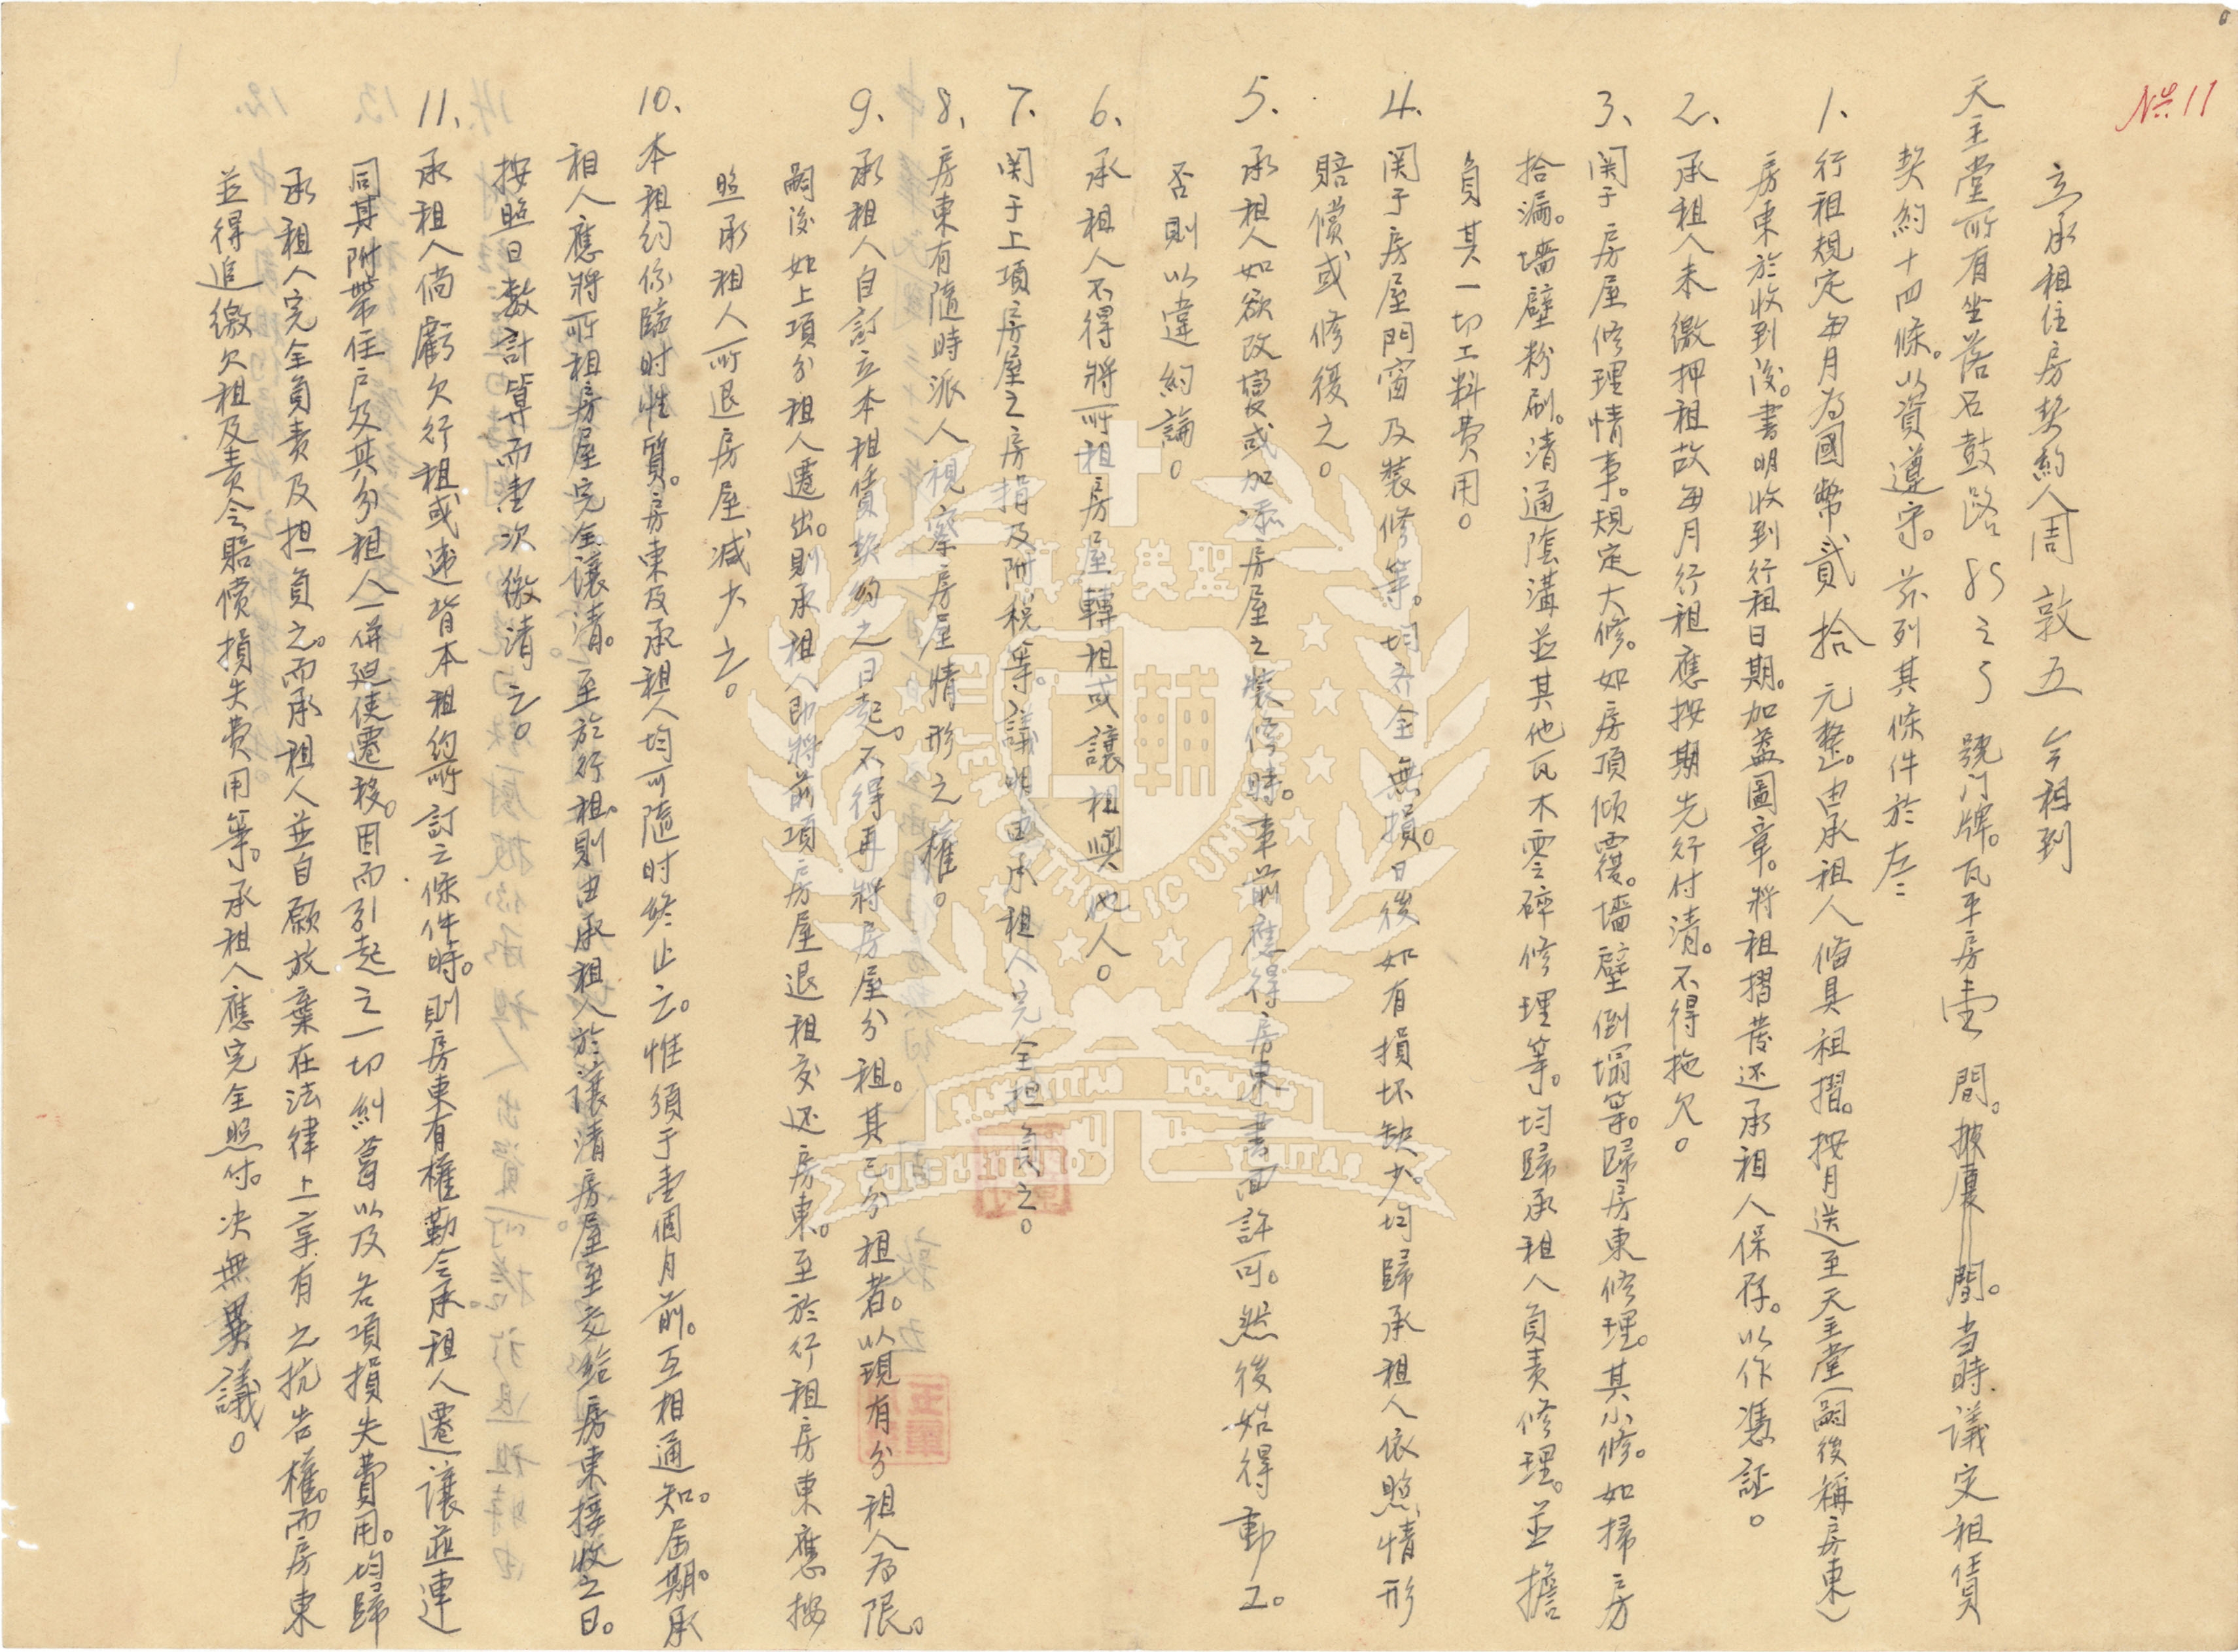 No. 11
立承租住房契約人周敦五今租到
天主堂所有坐落石鼓路85之5號门牌。瓦平房壹間。披厦 間。当時議定租賃
契約十四條。以資遵守。茲列其條件於左:
1、行租規定每月為國幣貳拾元整。由承租人俻具租摺。按月送至天主堂(嗣後稱房東)
房東於收到後。書明收到行租日期。加蓋圖章。將租摺發还承租人保存。以作憑証。
2、承租人未繳押租故每月行租應按期先行付清。不得拖欠。
3、関于房屋修理情事。規定大修。如房頂傾覆。墻壁倒塌等。歸房東修理。其小修。如掃房
拾漏。墻壁粉刷。清通陰溝並其他瓦木零碎修理等。均歸承租人負責修理。並擔
負其一切工料費用。
4、関于房屋門窗及裝修等。均齐全無損。日後如有損坏缺少。均歸承租人依照情形
賠償或修復之。
5、承租人如欲改變或加添房屋之裝修時。事前應得房東書面許可。然後始得動工。
否則以違約論。
6、承租人不得將所租房屋轉租或讓租與他人。
7、関于上項房屋之房捐及附税等。議明由承租人完全担負之。
8、房東有隨時派人視察房屋情形之權。
9、承租人自訂立本租賃契約之日起。不得再將房屋分租。其已分租者。以現有分租人為限。
嗣後如上項分租人遷出。則承租人即將前項房屋退租交还房東。至於行租房東應按
照承租人所退房屋減少之。
10、本租約係臨时性質。房東及承租人均可隨时終止之。惟須于壹個月前。互相通知。屆期。承
租人應將所租房屋完全讓清。至於行租。則由承租人於讓清房屋至交給房東接收之日。
按照日數計算而壹次繳清之。
11、承租人倘虧欠行租或违背本租約所訂之條件時。則房東有權勒令承租人遷讓並連
同其附帶住户及其分租人一併廹使遷移。因而引起之一切糾葛以及各項損失費用。均歸
承租人完全負责及担負之。而承租人並自願放棄在法律上享有之抗告權。而房東
並得追繳欠租及责令賠償損失費用等。承租人應完全照付。决無異議。